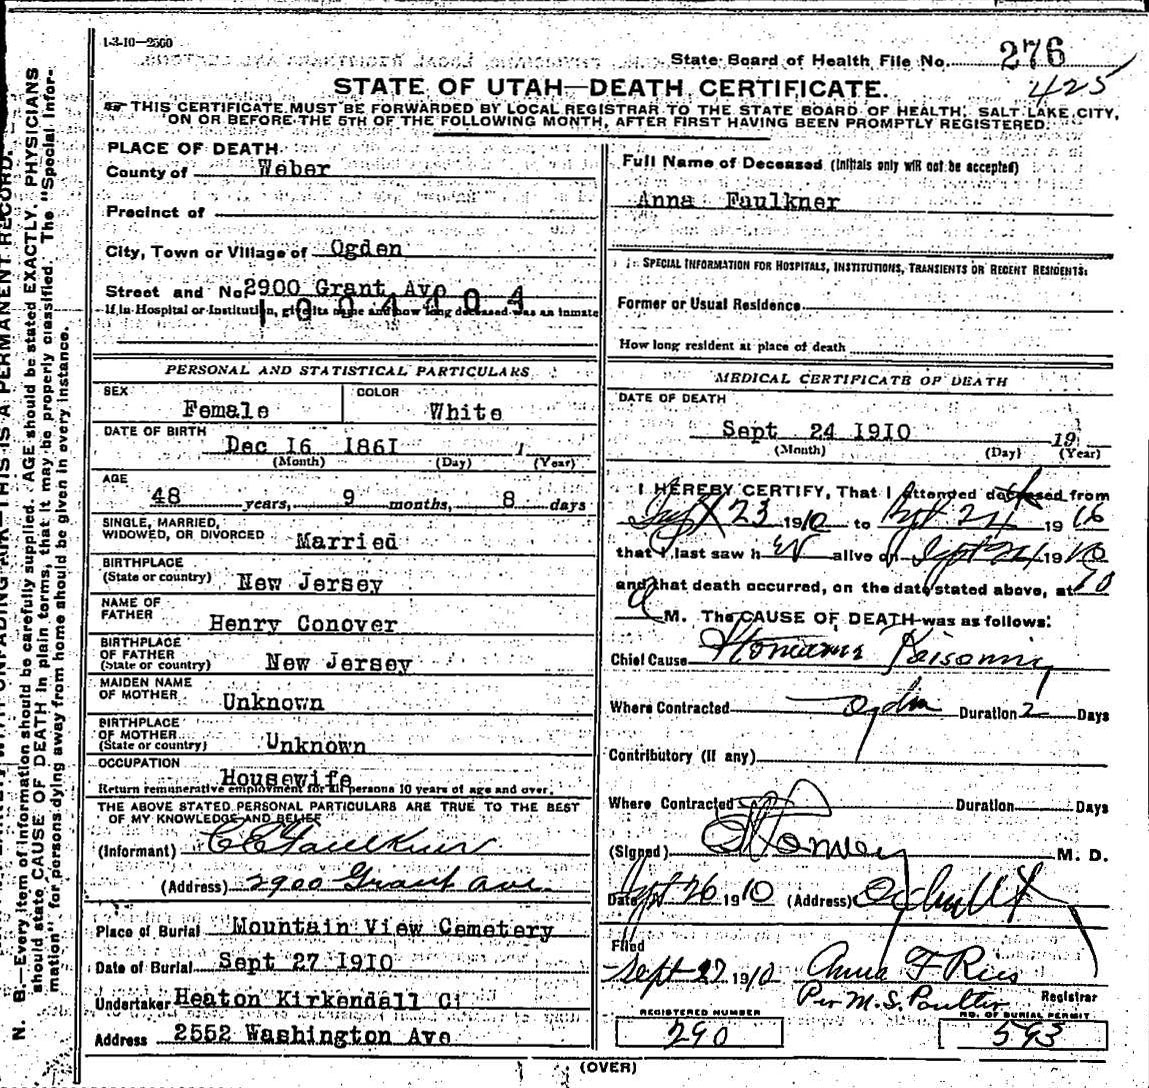 1-3-10—2500
State Board of Health File No. 276
425
STATE OF UTAH—DEATH CERTIFICATE.
THIS CERTIFICATE MUST BE FORWARDED BY LOCAL REGISTRAR TO THE STATE BOARD OF HEALTH, SALT LAKE CITY,
ON OR BEFORE THE 5TH OF THE FOLLOWING MONTH, AFTER FIRST HAVING BEEN PROMPTLY REGISTERED.
PLACE OF DEATH
County of Weber
Precinct of
City, Town or Village of Ogden
Street and No. 2900 Grant Ave
1004404
If in Hospital or Institution, give its name and how long deceased was an inmate
Full Name of Deceased (Initials only will not be accepted)
Anna Faulkner
SPECIAL INFORMATION FOR HOSPITALS, INSTITUTIONS, TRANSIENTS OR RECENT RESIDENTS:
Former or Usual Residence
How long resident at place of death
PERSONAL AND STATISTICAL PARTICULARS
SEX
Female
COLOR
White
DATE OF BIRTH
Dec 16 1861 1
(Month) (Day) (Year)
AGE
48 years, 9 months, 8 days
SINGLE, MARRIED,
WIDOWED, OR DIVORCED Married
BIRTHPLACE
(State or country) New Jersey
NAME OF
FATHER Henry Conover
BIRTHPLACE
OF FATHER
(State or country) New Jersey
MAIDEN NAME
OF MOTHER Unknown
BIRTHPLACE
OF MOTHER
(State or country) Unknown
OCCUPATION
Housewife
Return remunerative employment for all persons 10 years of age and over.
THE ABOVE STATED PERSONAL PARTICULARS ARE TRUE TO THE BEST
OF MY KNOWLEDGE AND BELIEF
(Informant) C E Faulkner
(Address) 2900 Grant Ave.
Place of Burial Mountain View Cemetery
Date of Burial Sept 27 1910
Undertaker Heaton Kirkendall C
Address 2552 Washington Ave
MEDICAL CERTIFICATE OF DEATH
DATE OF DEATH
Sept 24 1910 19
(Month) (Day) (Year)
I HEREBY CERTIFY, That I attended deceased from
Sept 23 1910 to Sept 24 1910
that I last saw her alive on Sept 24 1910
and that death occurred, on the date stated above, at
a M. The CAUSE OF DEATH was as follows:
Chief Cause Ptomaine Poisoning
Where Contracted Ogden Duration 2 Days
Contributory (if any)
Where Contracted Duration Days
(Signed) M. D.
Date Sept 26 1910 (Address) Ogden Ut
Filed
Sept 27 1910 Anna F Ries
Per M. S. Poulter Registrar
REGISTERED NUMBER
290
NO. OF BURIAL PERMIT
593
(OVER)
N. B.—Every item of information should be carefully supplied. AGE should be stated EXACTLY. PHYSICIANS
should state CAUSE OF DEATH in plain terms, that it may be properly classified. The "Special Infor-
mation" for persons dying away from home should be given in every instance.
THIS IS A PERMANENT RECORD.